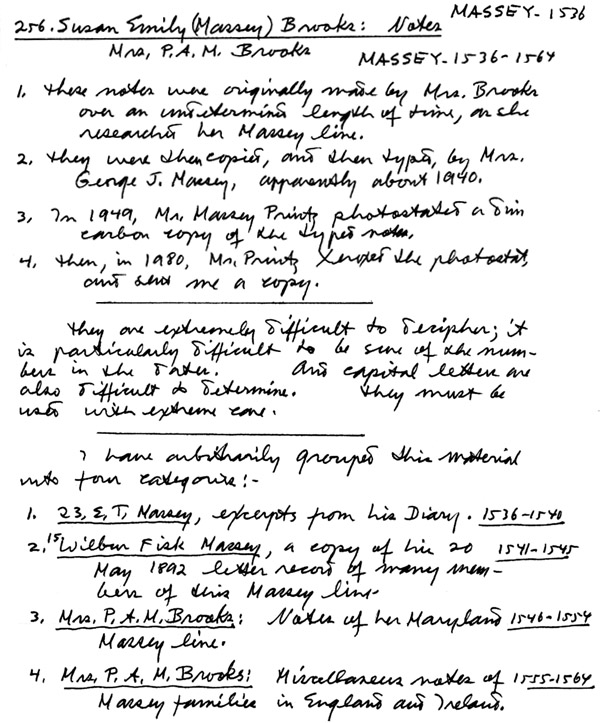 MASSEY-1536
256. Susan Emily (Massey) Brooks: Notes
Mrs, P.A.M. Brooks
MASSEY-1536-1564
1. These notes were originally made by Mrs. Brooks
over an undetermined length of time, as she
researched her Massey line.
2. They were then copied, and then typed, by Mrs.
George J. Massey, apparently about 1940.
3. In 1949, Mr. Massey Printz photostated a dim
carbon copy of the typed notes.
4. Then, in 1980, Mr. Printz Xeroxed the photostat,
and sent me a copy.
They are extremely difficult to decipher; it
is particularly difficult to be sure of the num-
bers in the dates. And capital letters are
also difficult to determine. They must be
used with extreme care.
I have arbitrarily grouped this material
into four categories:-
1. 23, E, T, Massey, excerpts from his Diary. 1536-1540
2. 15 Wilbur Fisk Massey, a copy of his 20 1541-1545
May 1892 letter record of many mem-
bers of this Massey line.
3. Mrs. P. A. M. Brooks: Notes of her Maryland 1546-1554
Massey line.
4. Mrs, P. A, M, Brooks: Miscellaneous notes of 1555-1564
Massey families in England and Ireland.